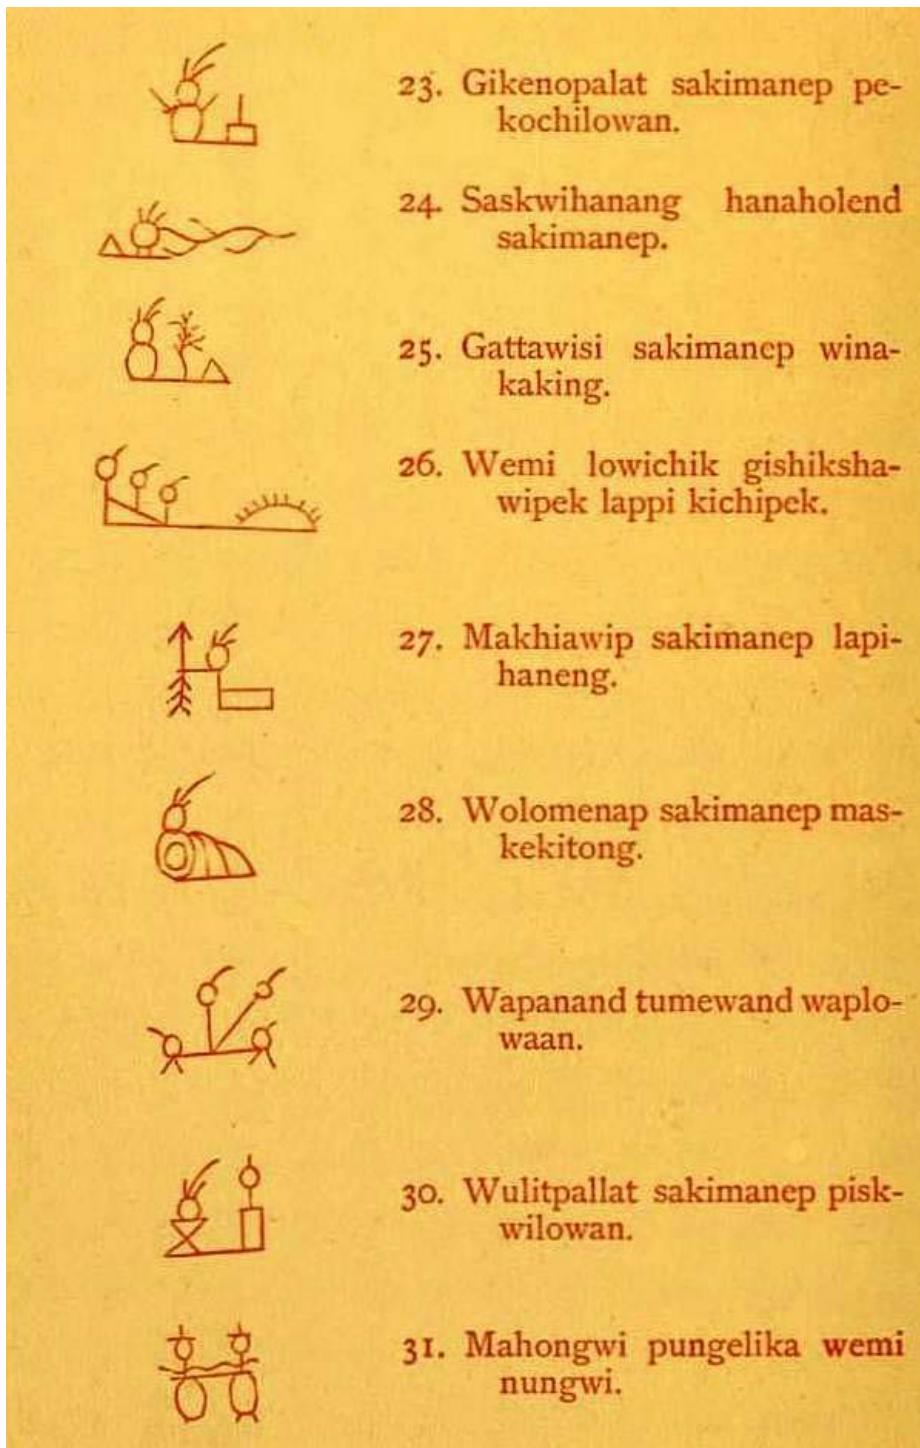 23. Gikenopalat sakimanep pe-
kochilowan.
24. Saskwihanang hanaholend
sakimanep.
25. Gattawisi sakimanep wina-
kaking.
26. Wemi lowichik gishiksha-
wipek lappi kichipek.
27. Makhiawip sakimanep lapi-
haneng.
28. Wolomenap sakimanep mas-
kekitong.
29. Wapanand tumewand waplo-
waan.
30. Wulitpallat sakimanep pisk-
wilowan.
31. Mahongwi pungelika wemi
nungwi.